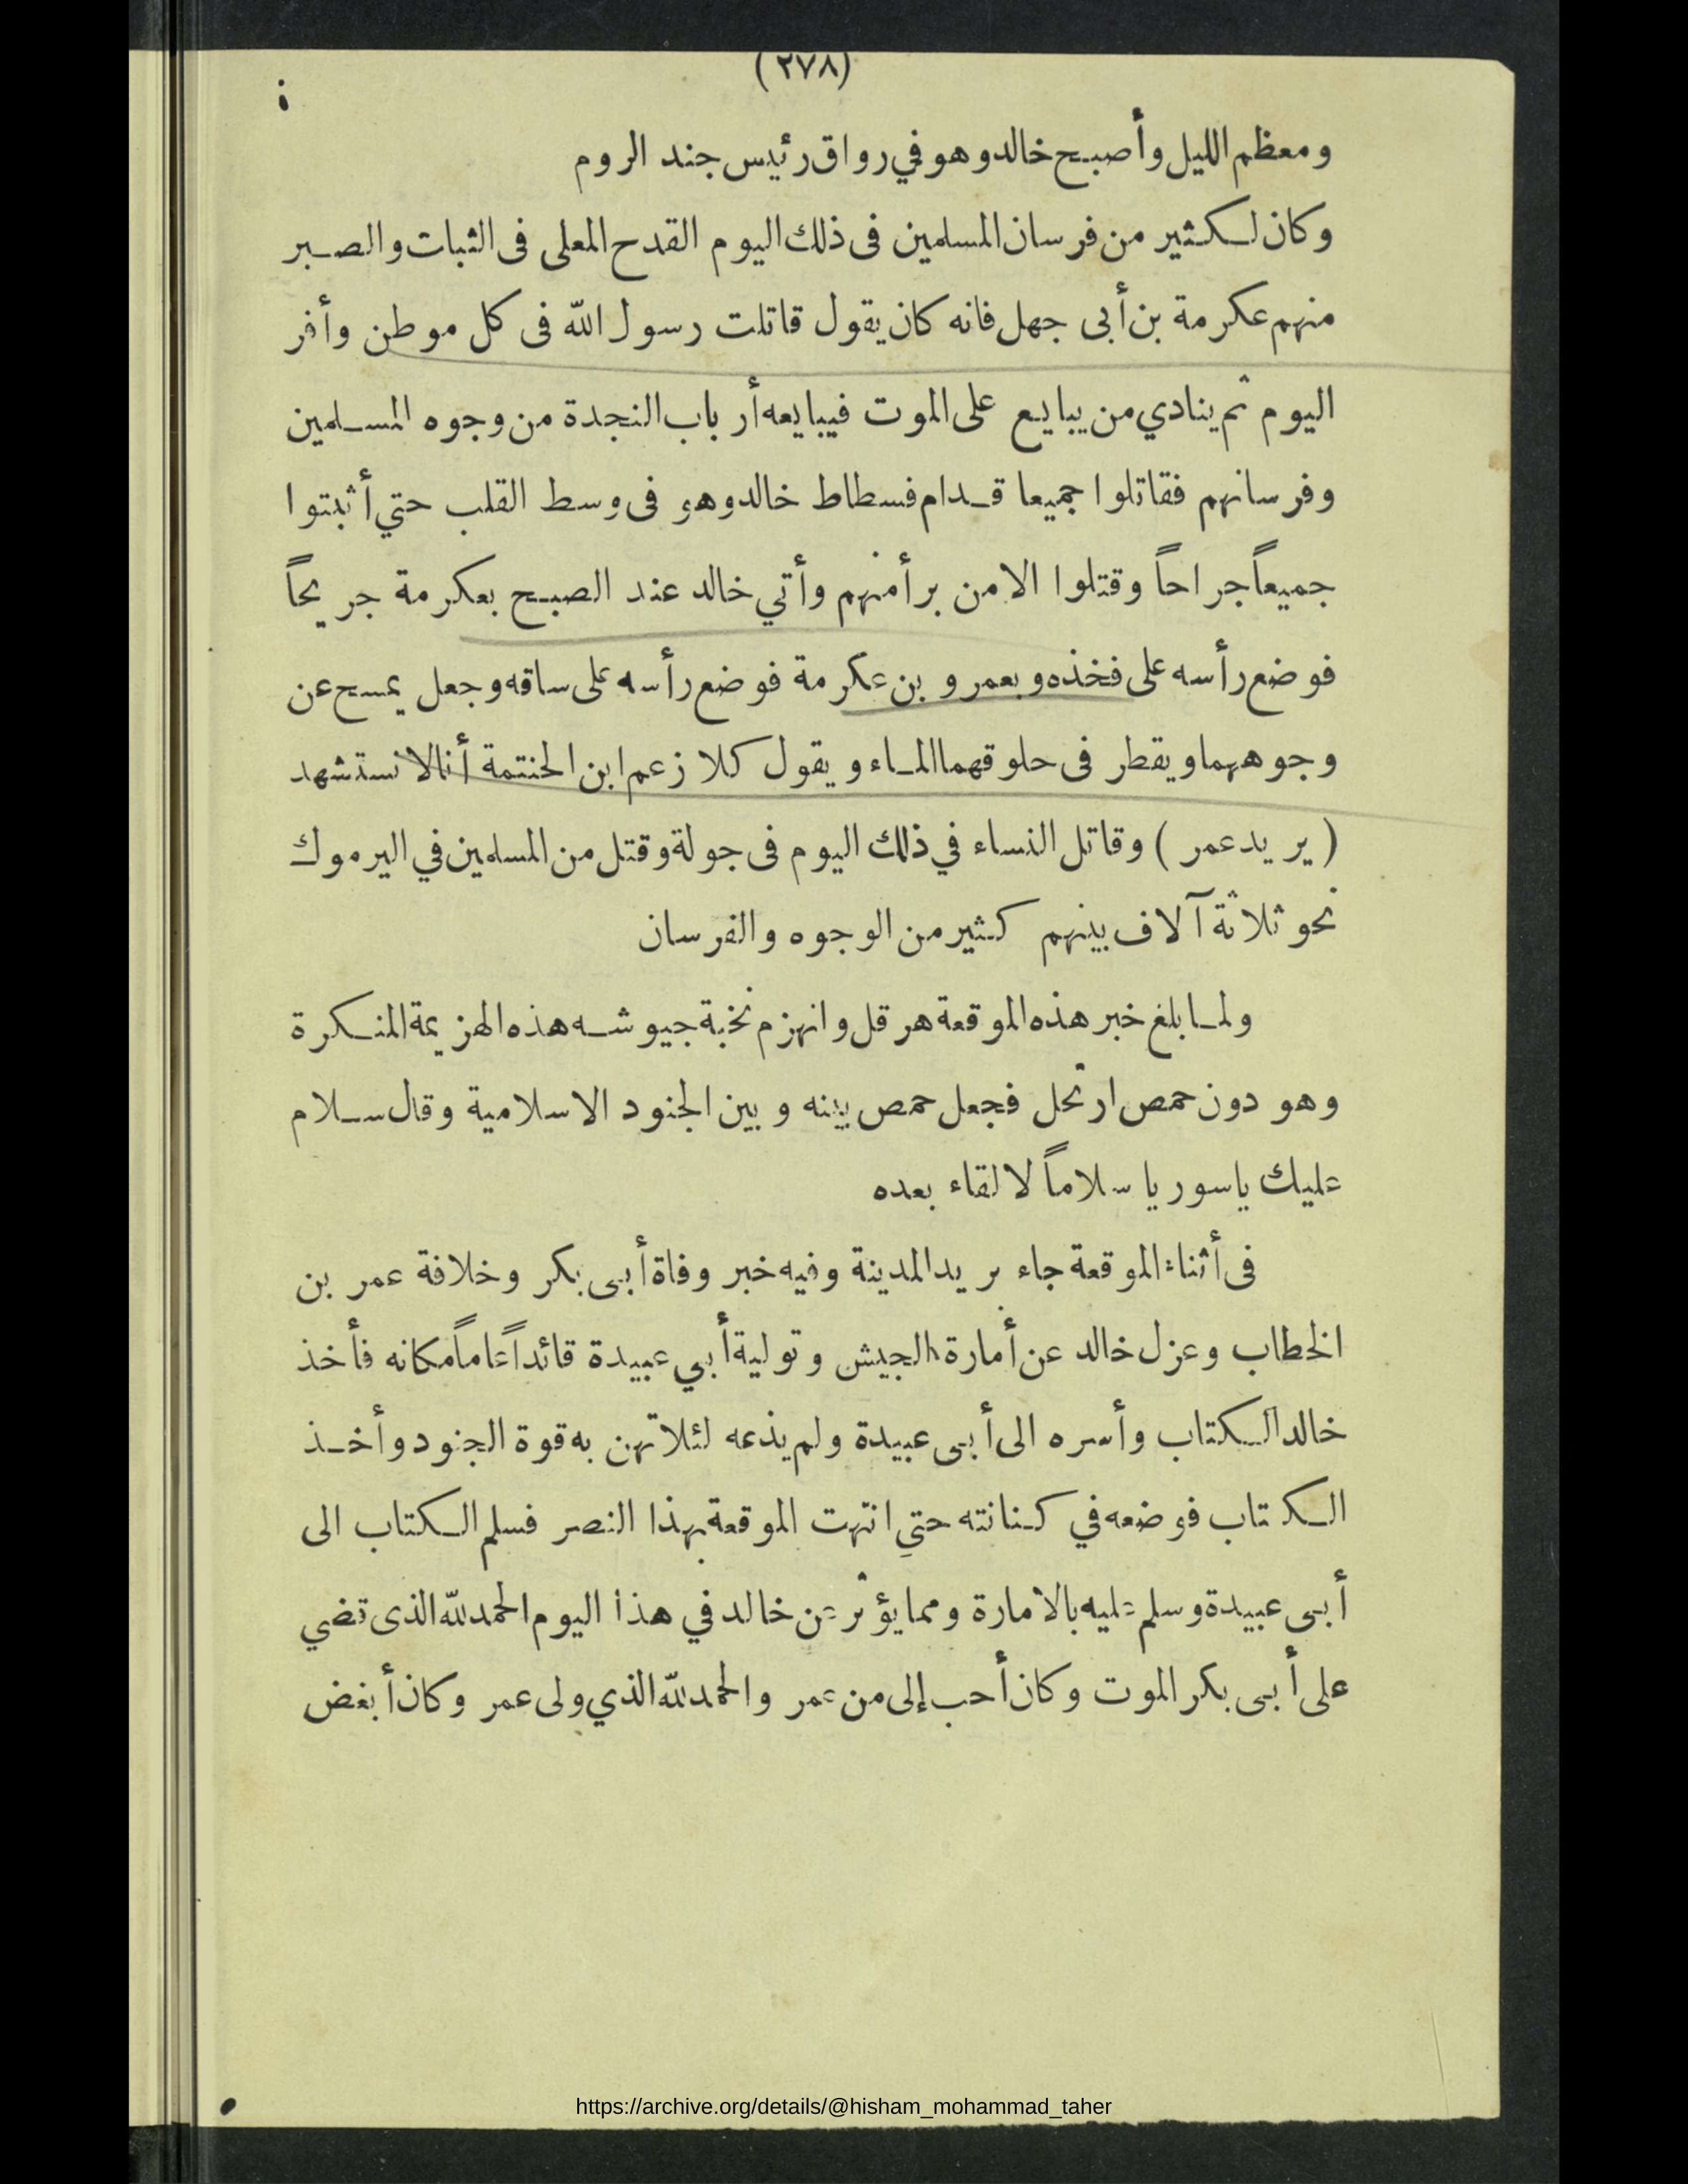 (٢٧٨)
ومعظم الليل وأصبح خالد وهو في رواق رئيس جند الروم
وكان لكثير من فرسان المسلمين فى ذلك اليوم القدح المعلى فى الثبات والصبر
منهم عكرمة بن أبى جهل فانه كان يقول قاتلت رسول الله فى كل موطن وأفر
اليوم ثم ينادي من يبايع على الموت فيبايعه أرباب النجدة من وجوه المسلمين
وفرسانهم فقاتلوا جميعا قدام فسطاط خالد وهو فى وسط القلب حتي أثبتوا
جميعاً جراحاً وقتلوا الا من برأ منهم وأتي خالد عند الصبح بعكرمة جريحاً
فوضع رأسه على فخذه وبعمرو بن عكرمة فوضع رأسه على ساقه وجعل يمسح عن
وجوههما ويقطر فى حلوقهما الماء ويقول كلا زعم ابن الحنتمة أنا لا نستشهد
(يريد عمر) وقاتل النساء في ذلك اليوم فى جولة وقتل من المسلمين في اليرموك
نحو ثلاثة آلاف بينهم كثير من الوجوه والفرسان
ولما بلغ خبر هذه الموقعة هرقل وانهزم نخبة جيوشه هذه الهزيمة المنكرة
وهو دون حمص ارتحل فجعل حمص بينه وبين الجنود الاسلامية وقال سلام
عليك ياسوريا سلاماً لا لقاء بعده
فى أثناء الموقعة جاء بريد المدينة وفيه خبر وفاة أبى بكر وخلافة عمر بن
الخطاب وعزل خالد عن أمارة الجيش وتولية أبي عبيدة قائداً عاماً مكانه فأخذ
خالد الكتاب وأسره الى أبى عبيدة ولم يذعه لئلا تهن به قوة الجنود وأخذ
الكتاب فوضعه في كنانته حتي انتهت الموقعة بهذا النصر فسلم الكتاب الى
أبى عبيدة وسلم عليه بالامارة ومما يؤثر عن خالد في هذا اليوم الحمد لله الذى قضي
على أبى بكر الموت وكان أحب إلى من عمر والحمد لله الذي ولى عمر وكان أبغض
https://archive.org/details/@hisham_mohammad_taher